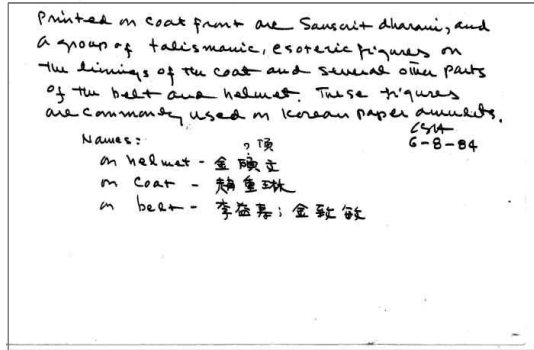 printed on coat front are Sanscrit dharani, and
a group of talismanic, esoteric figures on
the linings of the coat and several other parts
of the belt and helmet. These figures
are commonly used on Korean paper amulets.
6-8-84
Names:
, 頂
on helmet - 金碩立
on coat - 趙重琳
on belt - 李益慕; 金致敏